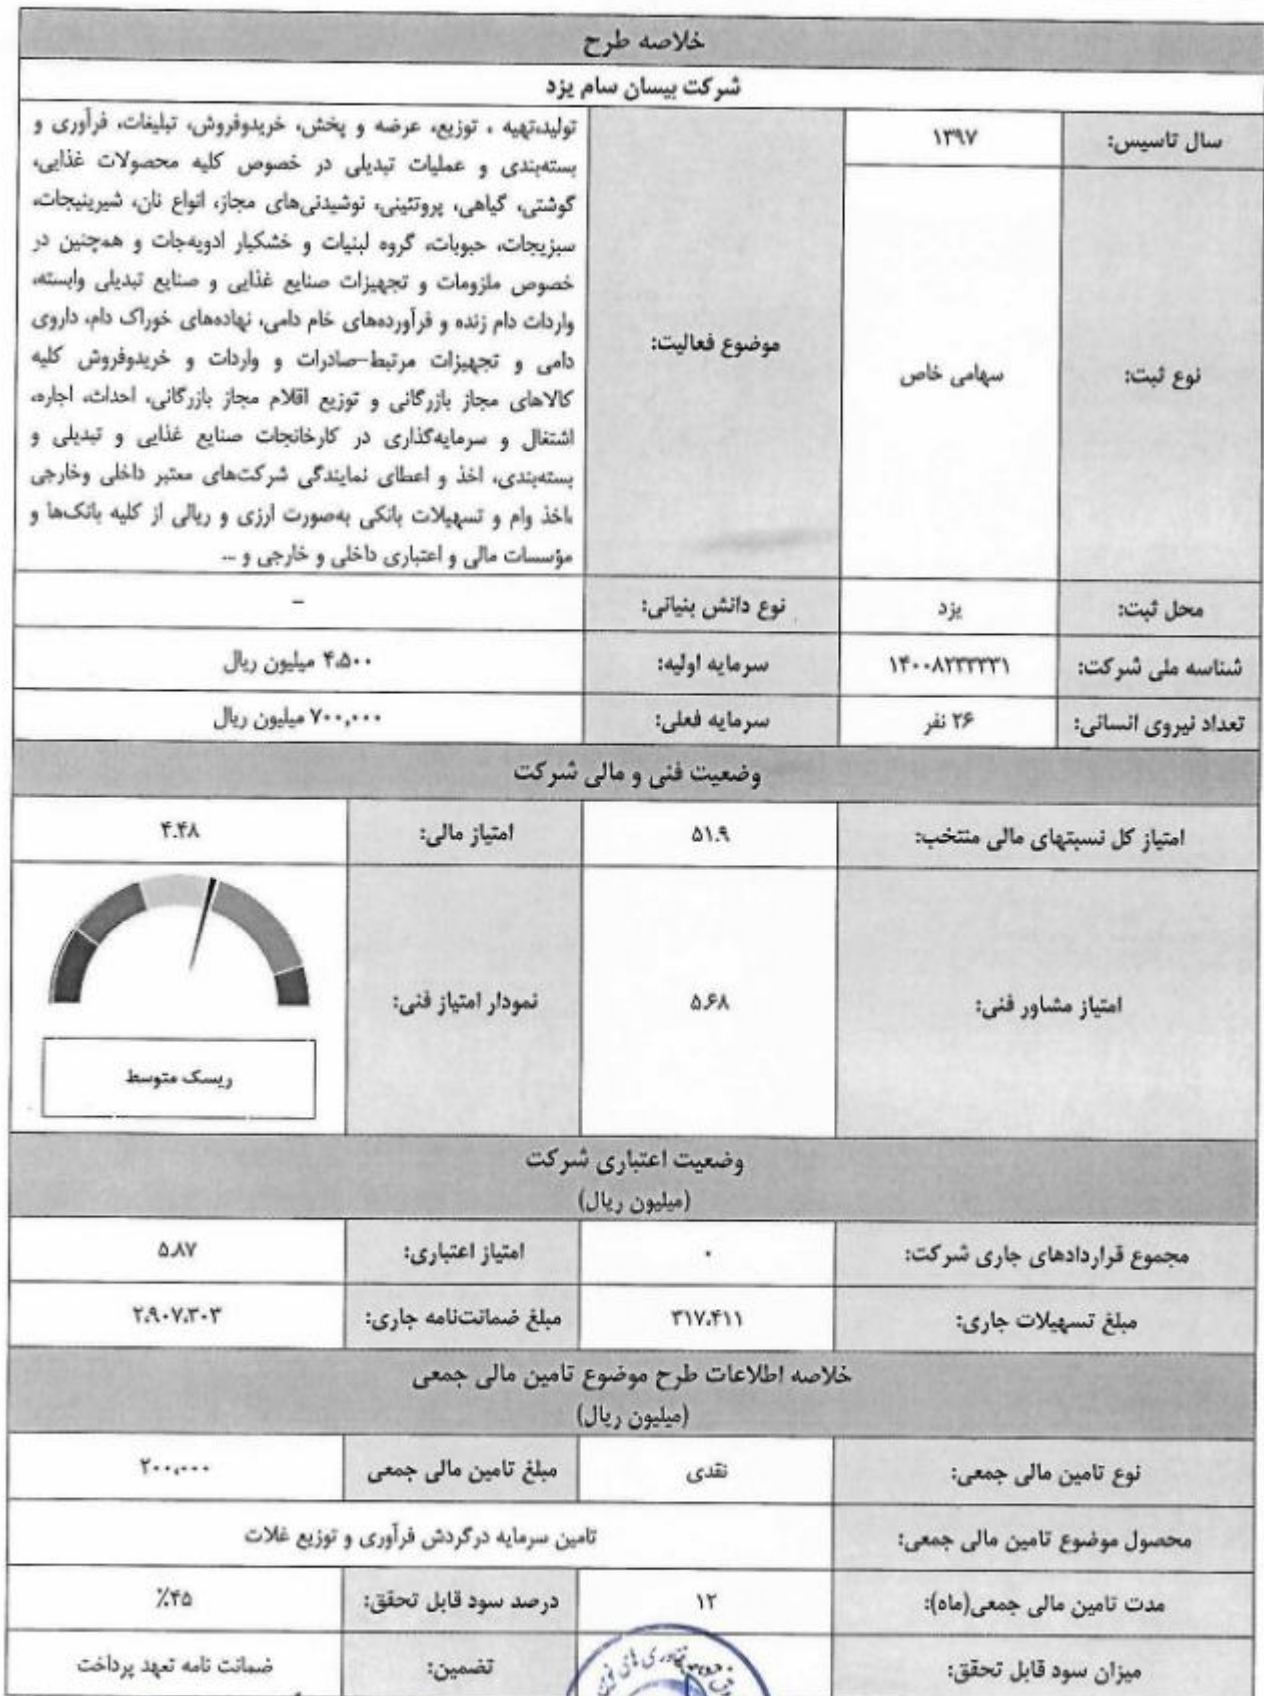 خلاصه طرح
شرکت بیسان سام یزد
سال تاسیس: ۱۳۹۷
نوع ثبت: سهامی خاص
موضوع فعالیت:
تولید،تهیه ، توزیع، عرضه و پخش، خریدوفروش، تبلیغات، فرآوری و
بسته‌بندی و عملیات تبدیلی در خصوص کلیه محصولات غذایی،
گوشتی، گیاهی، پروتئینی، نوشیدنی‌های مجاز، انواع نان، شیرینیجات،
سبزیجات، حبوبات، گروه لبنیات و خشکبار ادویه‌جات و همچنین در
خصوص ملزومات و تجهیزات صنایع غذایی و صنایع تبدیلی وابسته،
واردات دام زنده و فرآورده‌های خام دامی، نهاده‌های خوراک دام، داروی
دامی و تجهیزات مرتبط-صادرات و واردات و خریدوفروش کلیه
کالاهای مجاز بازرگانی و توزیع اقلام مجاز بازرگانی، احداث، اجاره،
اشتغال و سرمایه‌گذاری در کارخانجات صنایع غذایی و تبدیلی و
بسته‌بندی، اخذ و اعطای نمایندگی شرکت‌های معتبر داخلی وخارجی
،اخذ وام و تسهیلات بانکی به‌صورت ارزی و ریالی از کلیه بانک‌ها و
مؤسسات مالی و اعتباری داخلی و خارجی و ...
محل ثبت: یزد نوع دانش بنیانی: -
شناسه ملی شرکت: ۱۴۰۰۸۲۳۳۳۳۱ سرمایه اولیه: ۴،۵۰۰ میلیون ریال
تعداد نیروی انسانی: ۲۶ نفر سرمایه فعلی: ۷۰۰,۰۰۰ میلیون ریال
وضعیت فنی و مالی شرکت
امتیاز کل نسبتهای مالی منتخب: ۵۱.۹ امتیاز مالی: ۴.۴۸
امتیاز مشاور فنی: ۵.۶۸ نمودار امتیاز فنی:
ریسک متوسط
وضعیت اعتباری شرکت
(میلیون ریال)
مجموع قراردادهای جاری شرکت: ۰ امتیاز اعتباری: ۵.۸۷
مبلغ تسهیلات جاری: ۳۱۷،۴۱۱ مبلغ ضمانت‌نامه جاری: ۲،۹۰۷،۳۰۳
خلاصه اطلاعات طرح موضوع تامین مالی جمعی
(میلیون ریال)
نوع تامین مالی جمعی: نقدی مبلغ تامین مالی جمعی ۲۰۰،۰۰۰
محصول موضوع تامین مالی جمعی: تامین سرمایه درگردش فرآوری و توزیع غلات
مدت تامین مالی جمعی(ماه): ۱۲ درصد سود قابل تحقق: ۴۵٪
میزان سود قابل تحقق: تضمین: ضمانت نامه تعهد پرداخت